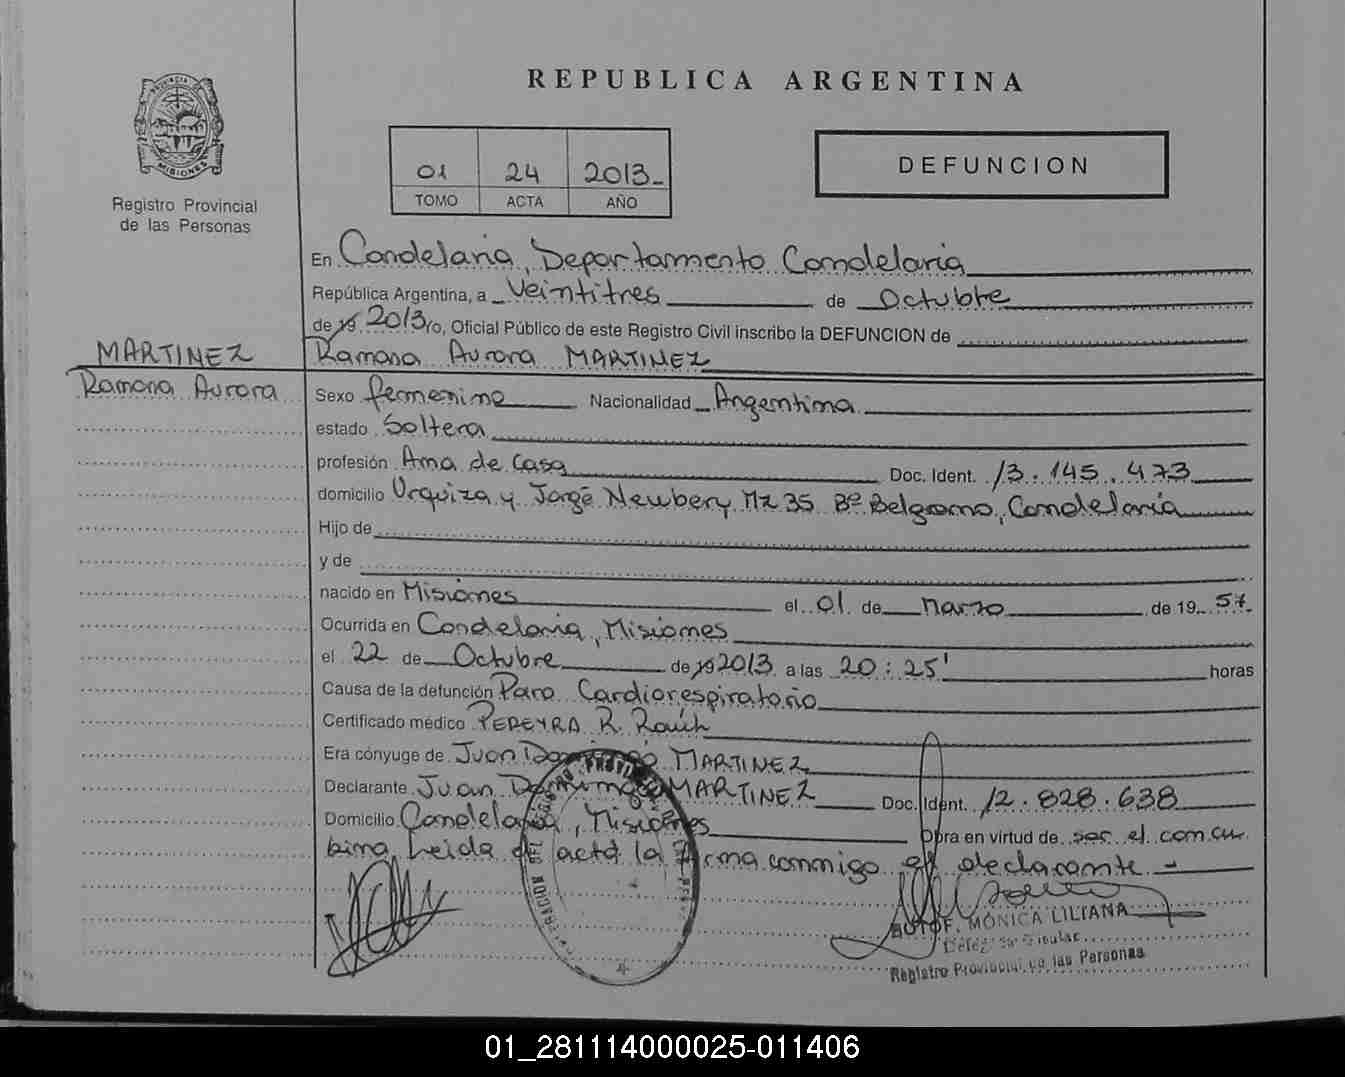 REPUBLICA ARGENTINA
PROVINCIA DE
MISIONES
Registro Provincial
de las Personas
01 24 2013-
TOMO ACTA AÑO
DEFUNCION
En Candelaria, Departamento Candelaria
República Argentina, a Veintitres de Octubre
de 19 2013 yo, Oficial Público de este Registro Civil inscribo la DEFUNCION de
MARTINEZ
Ramona Aurora MARTINEZ
Ramona Aurora
Sexo femenino Nacionalidad Argentina
estado Soltera
profesión Ama de Casa Doc. Ident. 13.145.473
domicilio Urquiza y Jorge Newbery Mz 35 Bº Belgrano, Candelaria
Hijo de
y de
nacido en Misiones el 01 de marzo de 19 57
Ocurrida en Candelaria, Misiones
el 22 de Octubre de 19 2013 a las 20:25' horas
Causa de la defunción Paro Cardiorespiratorio
Certificado médico PEREYRA R. Raúl
Era cónyuge de Juan Domingo MARTINEZ
Declarante Juan Domingo MARTINEZ Doc. Ident. 12.828.638
Domicilio Candelaria, Misiones Obra en virtud de ser el concu
bino, Leida el acta la firma conmigo el declarante -
MÓNICA LILIANA
Titular
Registro Provincial de las Personas
01_281114000025-011406